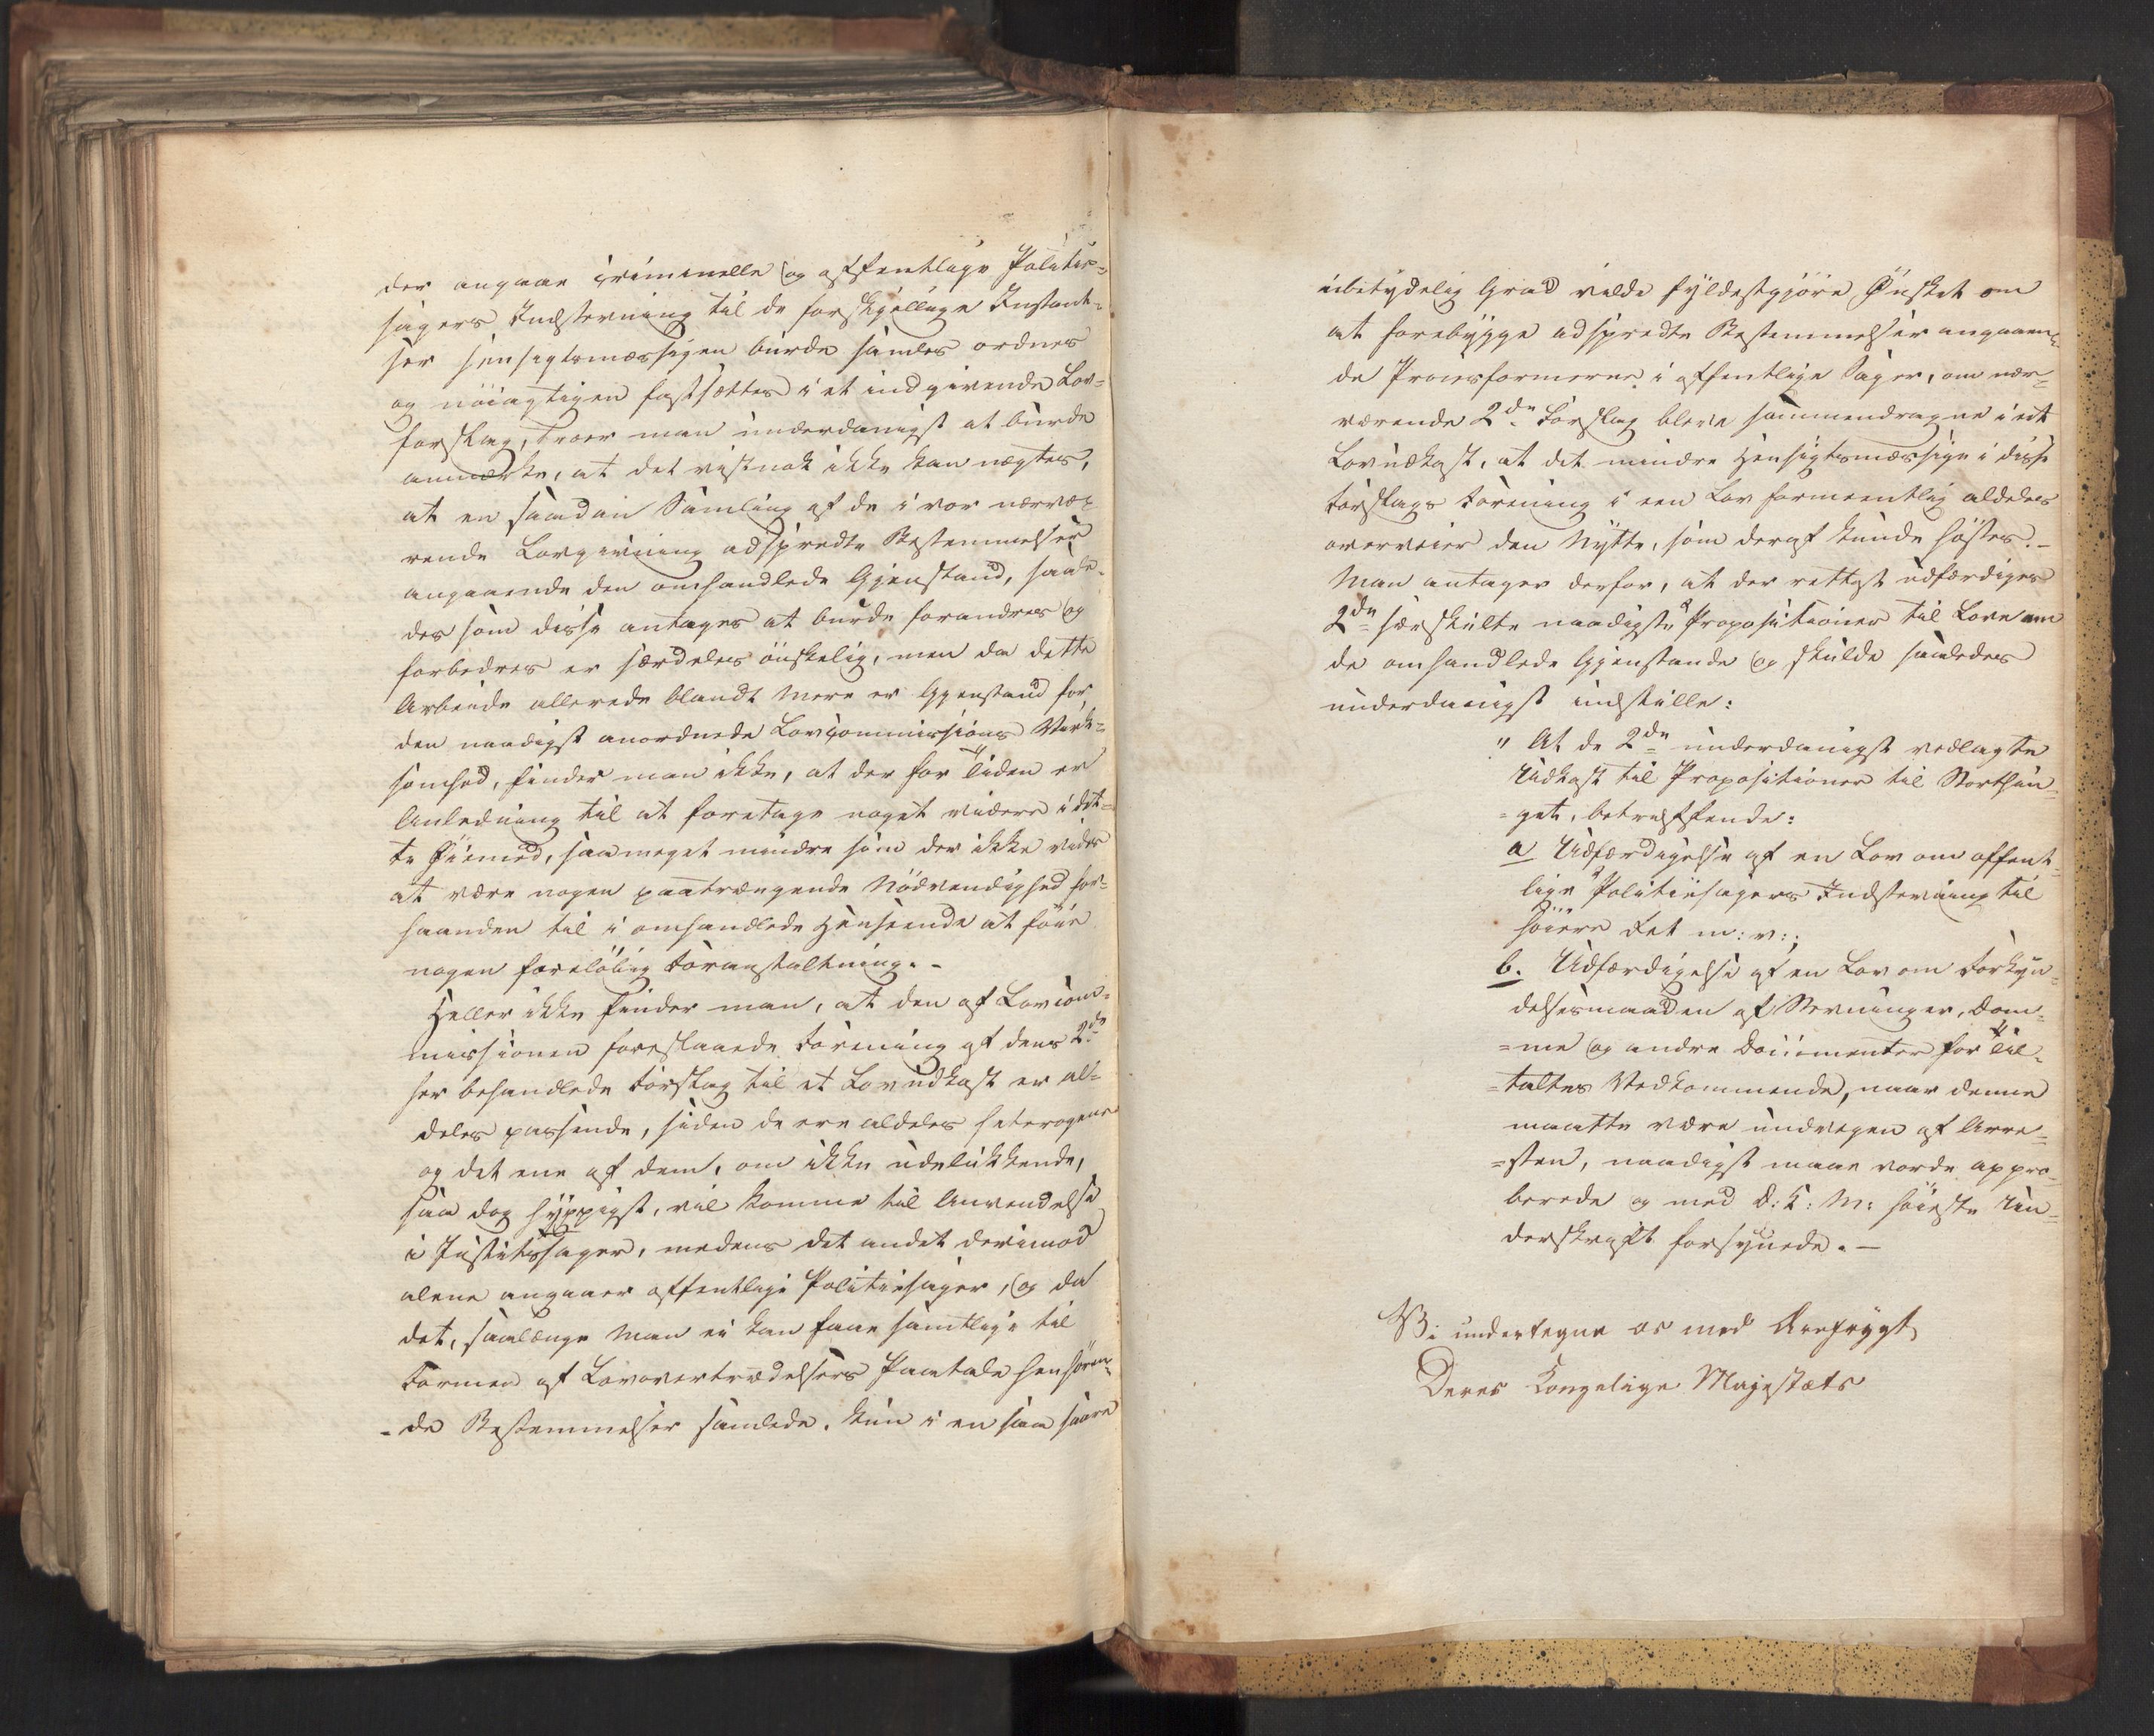 der angaae criminelle og offentlige Politie-
sagers Indstevning til de forskjellige Instant-
ser hensigtsmæssigen burde samles ordnes
og nöiagtigen fastsættes i et indgivende Lov-
forslag, troer man underdanigst at burde
anmærke, at det vistnok ikke kan nægtes,
at en saadan Samling af de i vor nærvæ-
rende Lovgivning adspredte Bestemmelser
angaaende den omhandlede Gjenstand, saale-
des som disse antages at burde forandres og
forbedres er særdeles önskelig, men da dette
Arbeide allerede blandt Mere er Gjenstand for
den naadigst anordnede Lovcommissions Virk-
somhed, finder man ikke, at der for Tiden er
Anledning til at foretage noget videre i det-
te Öiemed, saameget mindre som der ikke vides
at være nogen paatrængende Nödvendighed for-
haanden til i omhandlede Henseende at föie
nogen foreløbig Foranstaltning. -
Heller ikke finder man, at den af Lovcom-
missionen foreslaaede Forening af dens 2de
her behandlede Forslag til et Lovudkast er al-
deles passende, siden de ere aldeles heterogene
og det ene af dem, om ikke udelukkende,
saa dog hyppigst, vil komme til Anvendelse
i Justitssager, medens det andet derimod
alene angaaer offentlige Politiesager, og da
det, saalænge man ei kan faae samtlige til
Formen af Lovovertrædelsers Paatale henhören-
-de Bestemmelser samlede, kun i en saa saare
ubetydelig Grad vilde fyldestgjöre Önsket om
at forebygge adspredte Bestemmelser angaaen-
de Procesformerne i offentlige Sager, om nær-
værende 2de Forslag bleve sammendragne i eet
Lovudkast, at det mindre Hensigtsmæssige i disse
Forslags Forening i een Lov formeentlig aldeles
overveier den Nytte, som deraf kunde höstes. -
Man antager derfor, at der rettest udfærdiges
2de særskilte naadigste Propositioner til Love om
de omhandlede Gjenstande og skulde saaledes
underdanigst indstille:
" At de 2de underdanigst vedlagte
Udkast til Propositioner til Storthin-
-get, betræffende:
a Udfærdigelse af en Lov om offent-
lige Politiesagers Indstevning til
höiere Ret m: v:;
b. Udfærdigelse af en Lov om Forkyn-
delsesmaaden af Stevninger, Dom-
=me og andre Documenter for Til-
=taltes Vedkommende, naar denne
maatte være undvegen af Arre-
=sten, naadigst maae vorde appro-
berede og med D: K: M: höieste Un-
derskrift forsynede. -
Vi undertegne os med Ærefrygt
Deres Kongelige Majestæts